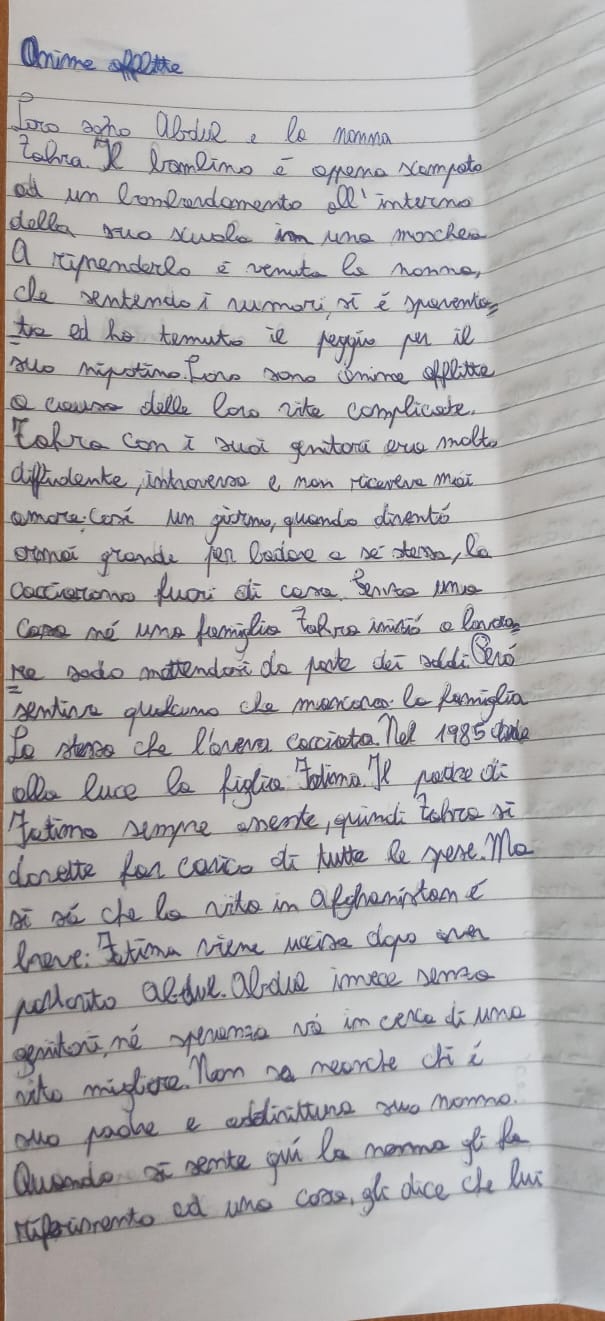 Anime afflitte
Loro sono Abdul e la nonna
Zahra. Il bambino è appena scampato
ad un bombardamento all'interno
della sua scuola in una moschea
A riprenderlo è venuta la nonna,
che sentendo i rumori, si è spaventa=
ta ed ha temuto il peggio per il
suo nipotino. Loro sono anime afflitte
a causa delle loro vite complicate.
Zahra con i suoi genitori era molto
diffidente, introversa e non riceveva mai
amore. Così un giorno, quando diventò
ormai grande per badare a sé stessa, la
cacciarono fuori di casa. Senza una
casa né una famiglia Zahra iniziò a lavora=
re sodo mettendosi da parte dei soldi. Però
sentiva qualcuno che mancava: la famiglia
La stessa che l'aveva cacciata. Nel 1985 diede
alla luce la figlia Fatima. Il padre di
Fatima sempre assente, quindi Zahra si
dovette far carico di tutte le spese. Ma
si sà che la vita in Afghanistan è
breve: Fatima viene uccisa dopo aver
partorito Abdul. Abdul invece senza
genitori, né speranza và in cerca di una
vita migliore. Non sa neanche chi è
suo padre e addirittura suo nonno.
Quando si sente qui la nonna gli fa
riferimento ad una cosa, gli dice che lui